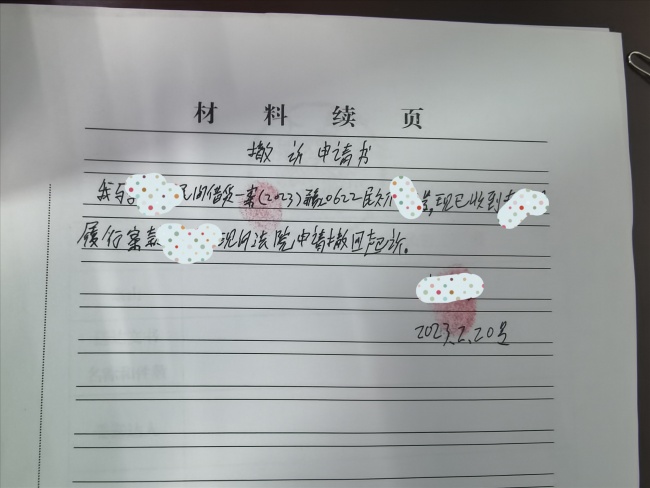 材料续页
撤诉申请书
我与 民间借贷一案(2023)赣0622民初 号,现已收到
履行案款 现向法院申请撤回起诉。
2023.2.20号